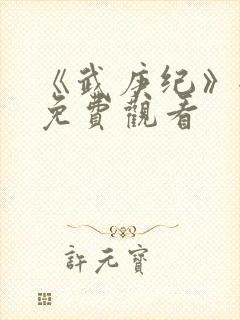 《武庚纪》
免費觀看
許元寶